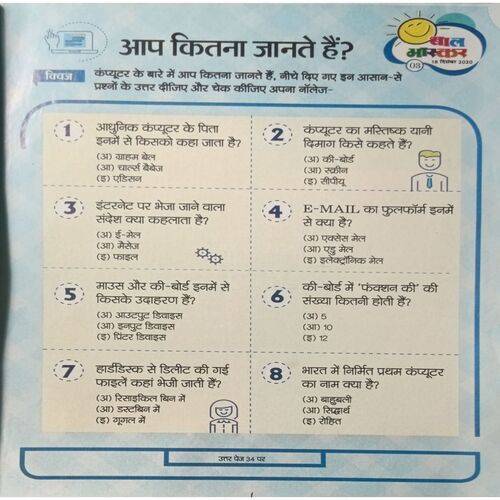 आप कितना जानते हैं?
बाल
भास्कर
03
18 दिसंबर 2020
क्विज
कंप्यूटर के बारे में आप कितना जानते हैं, नीचे दिए गए इन आसान-से
प्रश्नों के उत्तर दीजिए और चेक कीजिए अपना नॉलेज-
1
आधुनिक कंप्यूटर के पिता
इनमें से किसको कहा जाता है?
(अ) ग्राहम बेल
(आ) चार्ल्स बैबेज
(इ) एडिसन
2
कंप्यूटर का मस्तिष्क यानी
दिमाग किसे कहते हैं?
(अ) की-बोर्ड
(आ) स्क्रीन
(इ) सीपीयू
3
इंटरनेट पर भेजा जाने वाला
संदेश क्या कहलाता है?
(अ) ई-मेल
(आ) मैसेज
(इ) फाइल
4
E-MAIL का फुलफॉर्म इनमें
से क्या है?
(अ) एक्सेस मेल
(आ) एडु मेल
(इ) इलेक्ट्रॉनिक मेल
5
माउस और की-बोर्ड इनमें से
किसके उदाहरण हैं?
(अ) आउटपुट डिवाइस
(आ) इनपुट डिवाइस
(इ) प्रिंटर डिवाइस
6
की-बोर्ड में 'फंक्शन की' की
संख्या कितनी होती हैं?
(अ) 5
(आ) 10
(इ) 12
7
हार्डडिस्क से डिलीट की गई
फाइलें कहां भेजी जाती हैं?
(अ) रिसाइकिल बिन में
(आ) डस्टबिन में
(इ) गूगल में
8
भारत में निर्मित प्रथम कंप्यूटर
का नाम क्या है?
(अ) बाहुबली
(आ) सिद्धार्थ
(इ) रोहित
उत्तर पेज 34 पर